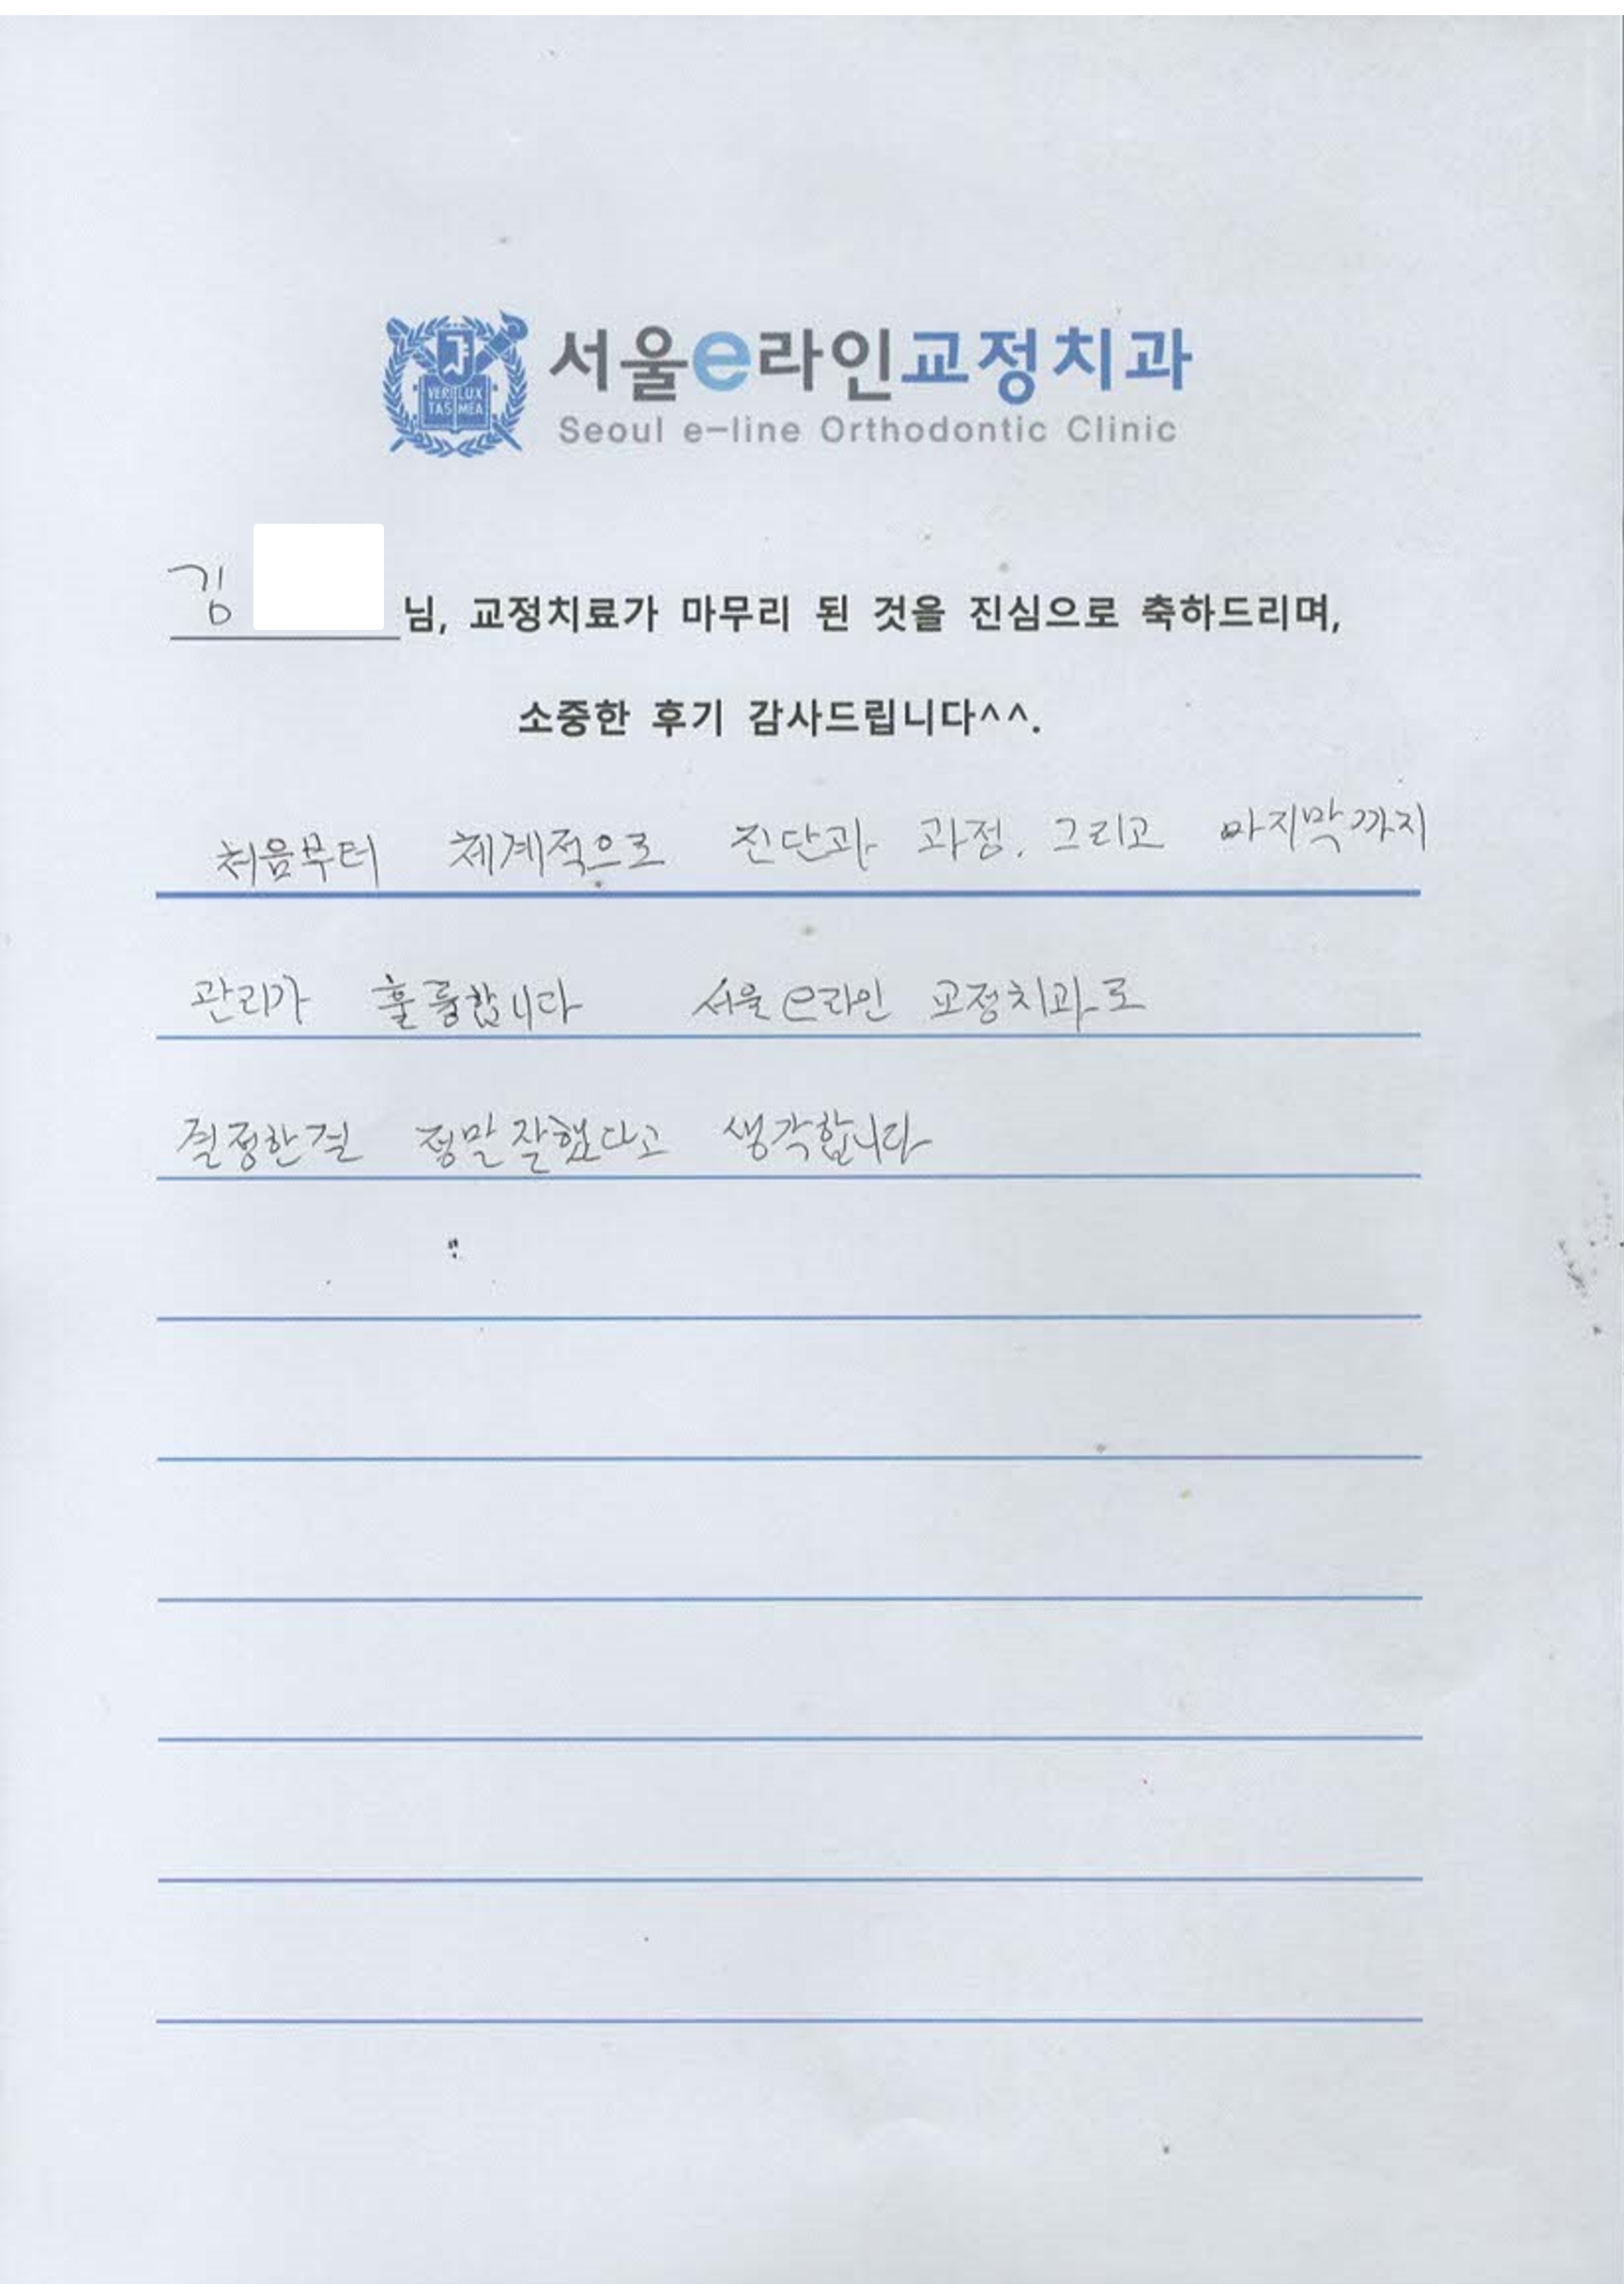 VERI LUX
TAS MEA
서울e라인교정치과
Seoul e-line Orthodontic Clinic
김 님, 교정치료가 마무리 된 것을 진심으로 축하드리며,
소중한 후기 감사드립니다^^.
처음부터 체계적으로 진단과 과정. 그리고 마지막까지
관리가 훌륭합니다 서울e라인 교정치과로
결정한걸 정말잘했다고 생각합니다